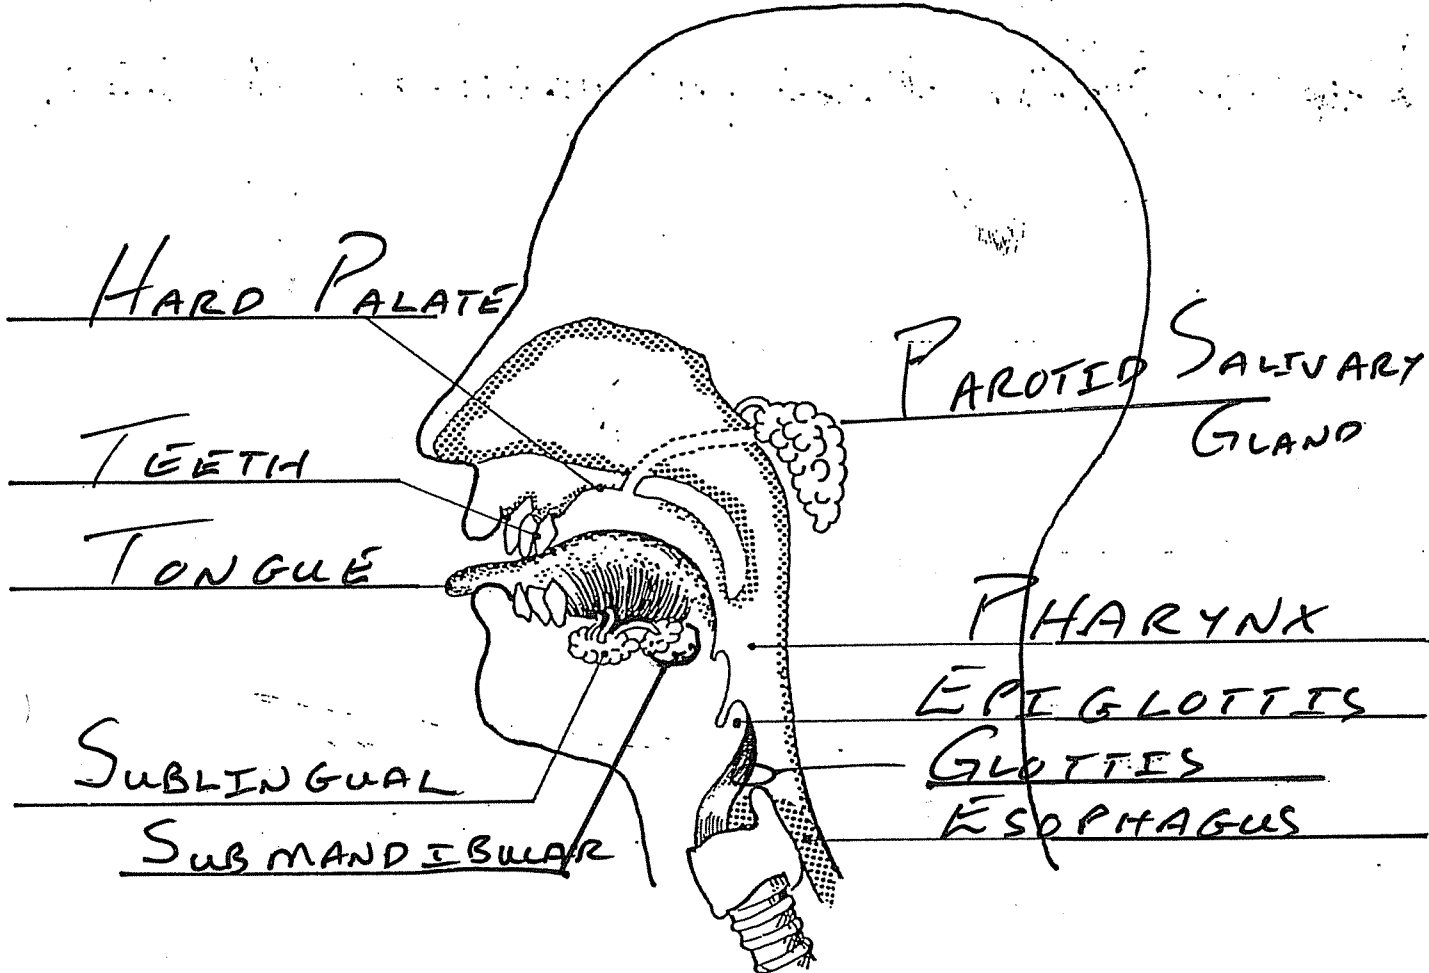 HARD PALATE
TEETH
TONGUE
SUBLINGUAL
SUBMANDIBULAR
PAROTID SALIVARY
GLAND
PHARYNX
EPIGLOTTIS
GLOTTIS
ESOPHAGUS